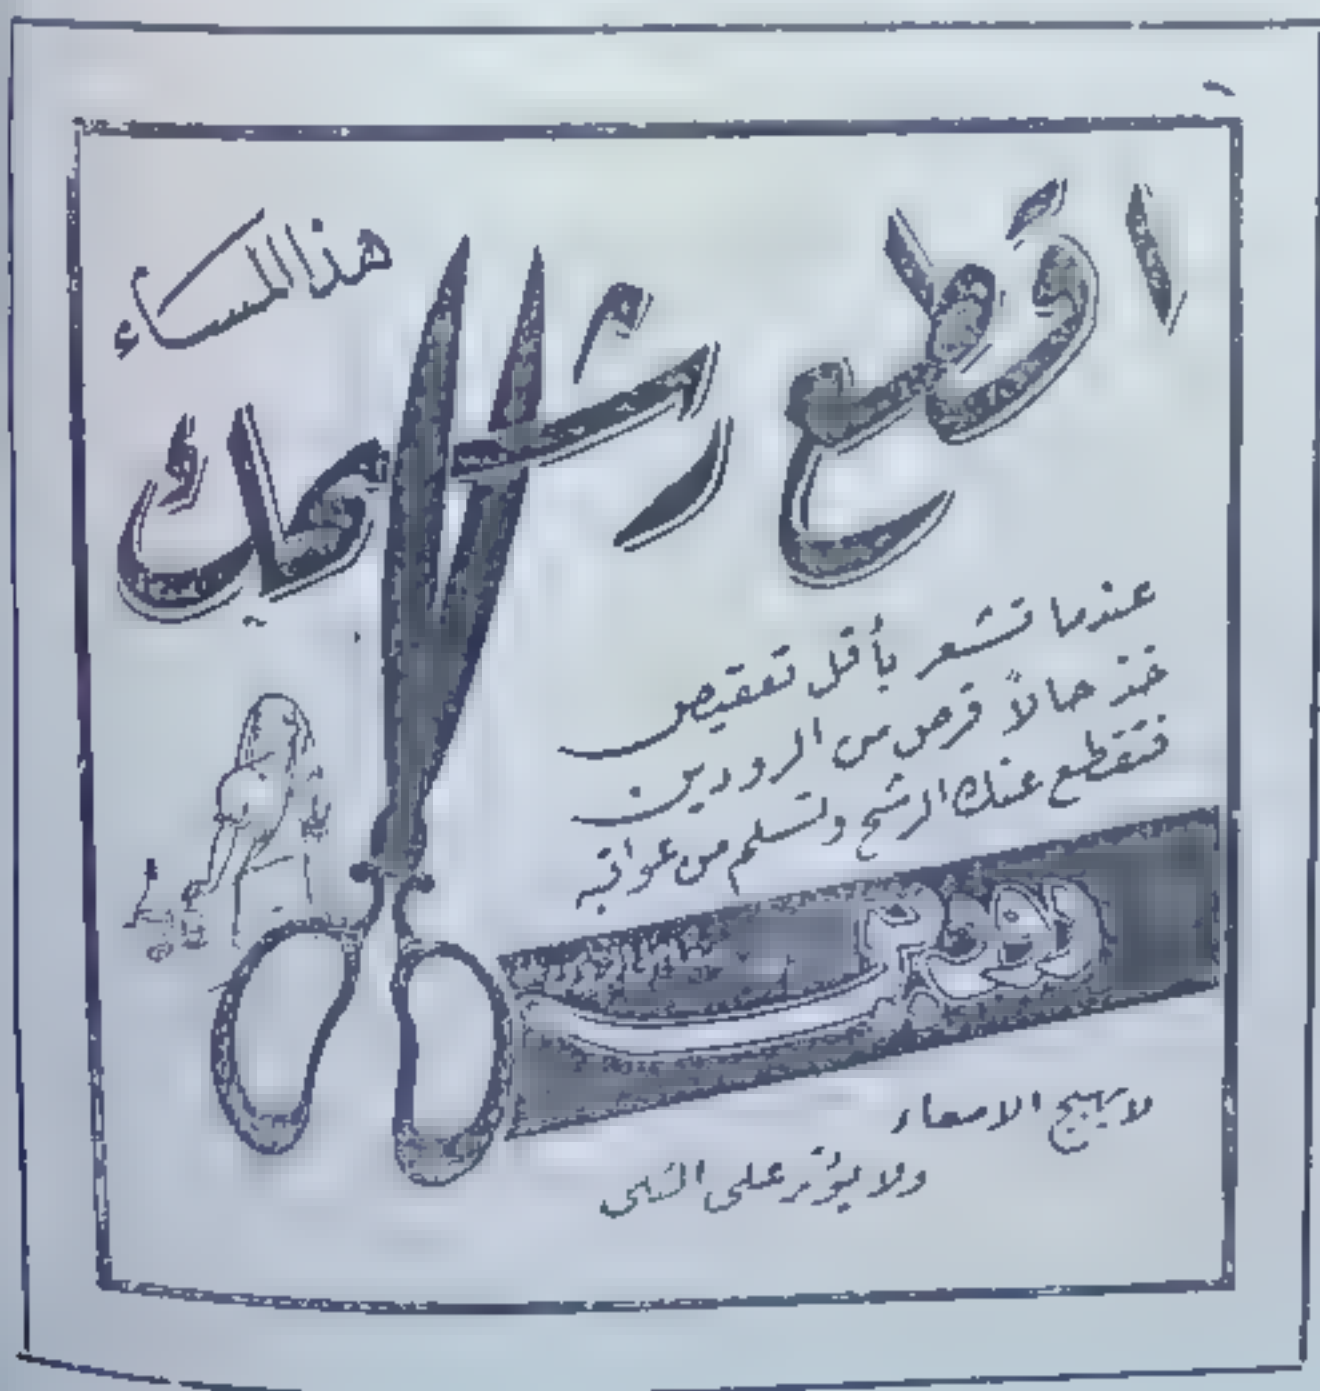 اقطع رشحك
هذا المساء
عندما تشعر بأقل تقعيص
خذ حالاً قرص من الرودين
فتقطع عنك الرشح وتسلم من عواقبه
رودين
لا يهيج الامعاء
ولا يؤثر على الكلى